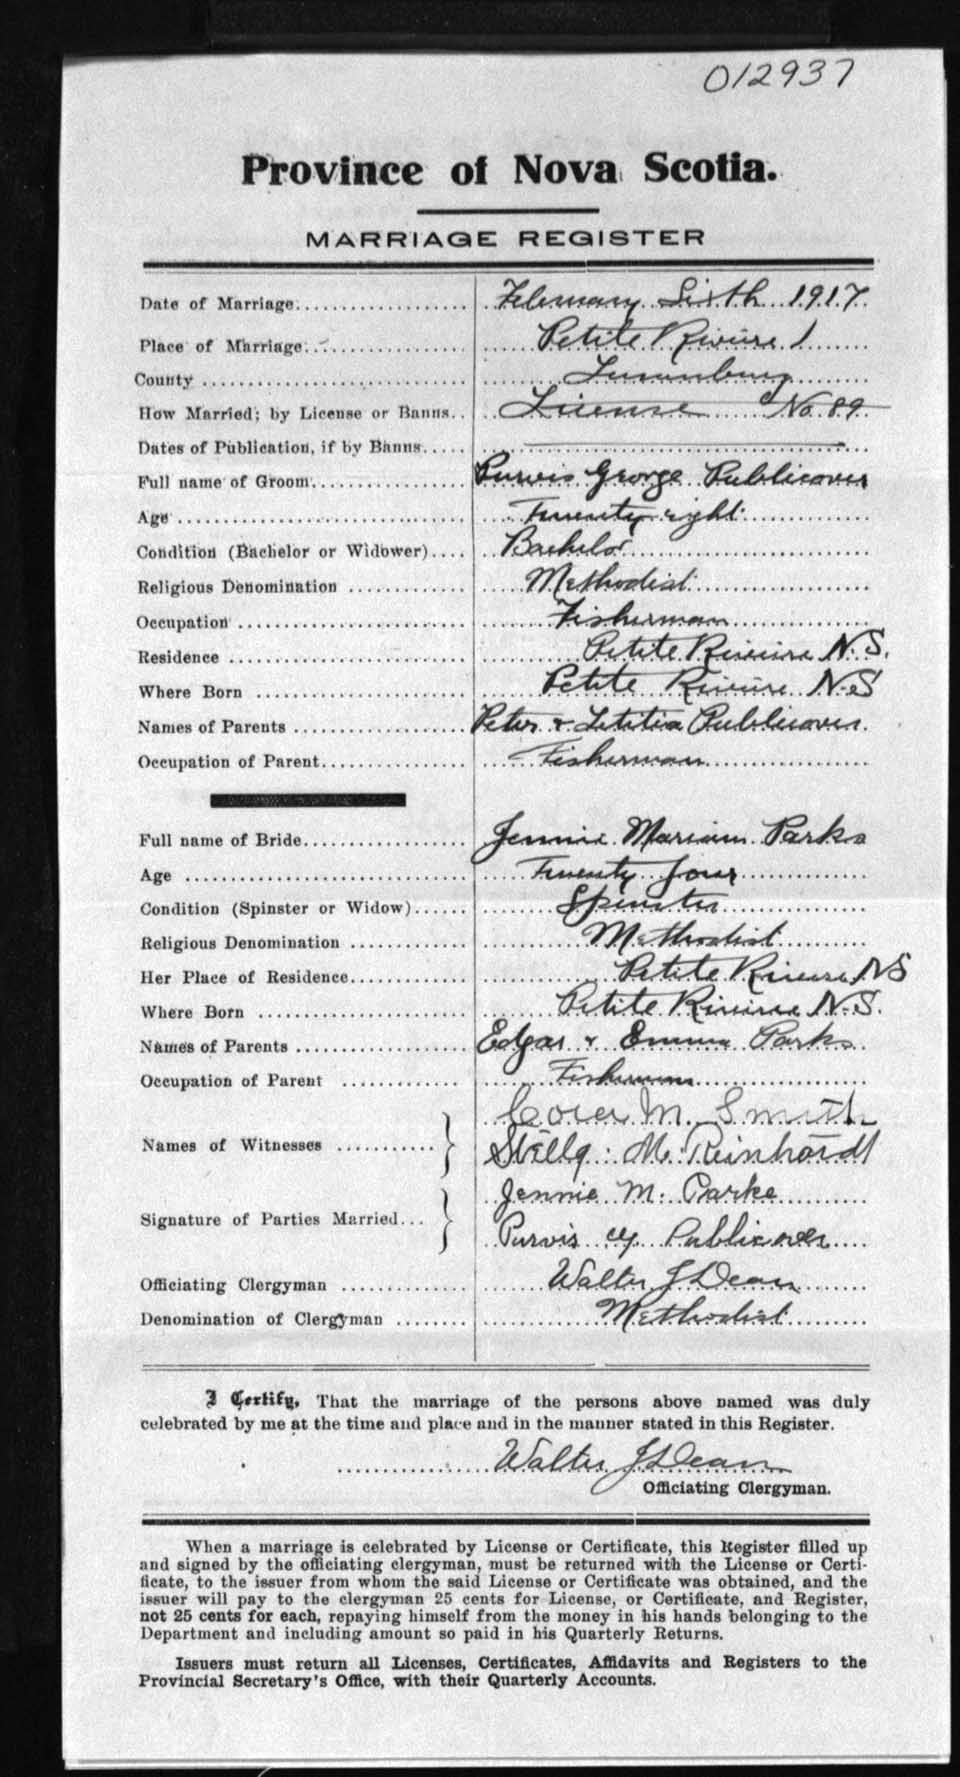 012937
Province of Nova Scotia.
MARRIAGE REGISTER
Date of Marriage. February Sixth 1917.
Place of Marriage. Petite Riviere
County Lunenburg
How Married; by License or Banns. License No. 89
Dates of Publication, if by Banns.
Full name of Groom. Purvis George Publicover
Age Twenty eight
Condition (Bachelor or Widower) Bachelor
Religious Denomination Methodist
Occupation Fisherman
Residence Petite Riviere N.S.
Where Born Petite Riviere N.S
Names of Parents Peter & Letitia Publicover.
Occupation of Parent. Fisherman
Full name of Bride. Jennie Mariam Parks
Age Twenty four
Condition (Spinster or Widow) Spinster
Religious Denomination Methodist
Her Place of Residence. Petite Riviere, NS
Where Born Petite Riviere N.S.
Names of Parents Edgar & Emma Parks
Occupation of Parent Fisherman
Cora M. Smith
Names of Witnesses } Stella M. Reinhardt
Jennie M. Parks
Signature of Parties Married } Purvis G Publicover
Officiating Clergyman Walter J Dean
Denomination of Clergyman Methodist
I Certify, That the marriage of the persons above named was duly
celebrated by me at the time and place and in the manner stated in this Register.
Walter J Dean
Officiating Clergyman.
When a marriage is celebrated by License or Certificate, this Register filled up
and signed by the officiating clergyman, must be returned with the License or Certi-
ficate, to the issuer from whom the said License or Certificate was obtained, and the
issuer will pay to the clergyman 25 cents for License, or Certificate, and Register,
not 25 cents for each, repaying himself from the money in his hands belonging to the
Department and including amount so paid in his Quarterly Returns.
Issuers must return all Licenses, Certificates, Affidavits and Registers to the
Provincial Secretary's Office, with their Quarterly Accounts.